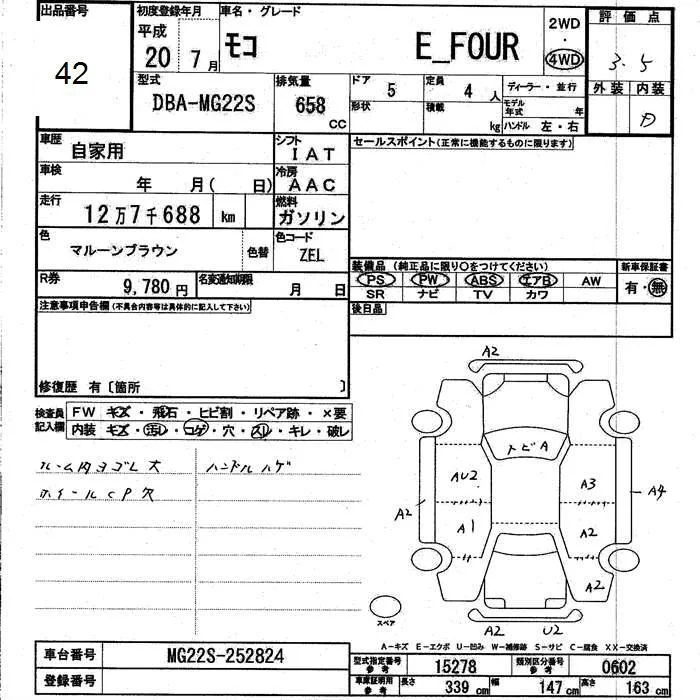 出品番号 初度登録年月 車名・グレード 2WD 評価点
42 平成 20 7月 モコ E_FOUR ・ 4WD 3.5
型式 DBA-MG22S 排気量 658 CC ドア 5 定員 4 人 ディーラー・並行 外装 内装
形状 積載 kg モデル年式 年 D
ハンドル 左・右
車歴 自家用 シフト IAT セールスポイント(正常に機能するものに限ります)
車検 年 月( 日) 冷房 AAC
走行 12万7千688 km 燃料 ガソリン
色 マルーンブラウン 色替 色コード ZEL
装備品 (純正品に限り○をつけてください) 新車保証書
R券 9,780円 名変通知期限 月 日 PS PW ABS エアB AW 有・無
SR ナビ TV カワ
注意事項申告欄(不具合内容等は具体的に記入して下さい) 後日品
修復歴 有〔箇所 〕
検査員記入欄 FW キズ・飛石・ヒビ割・リペア跡・×要
内装 キズ・汚レ・コゲ・穴・スレ・キレ・破レ
ルーム内ヨゴレ大 ハンドルハゲ
ホイールCP欠
A2
トビA
AU2 A3
A2 A4
A1 A2
A2
スペア A2 U2
A-キズ E-エクボ U-凹み W-補修跡 S-サビ C-腐食 XX-交換済
車台番号 MG22S-252824 型式指定番号 参考 15278 類別区分番号 参考 0602
登録番号 車庫証明用 参考 長さ 339cm 幅 147cm 高さ 163cm